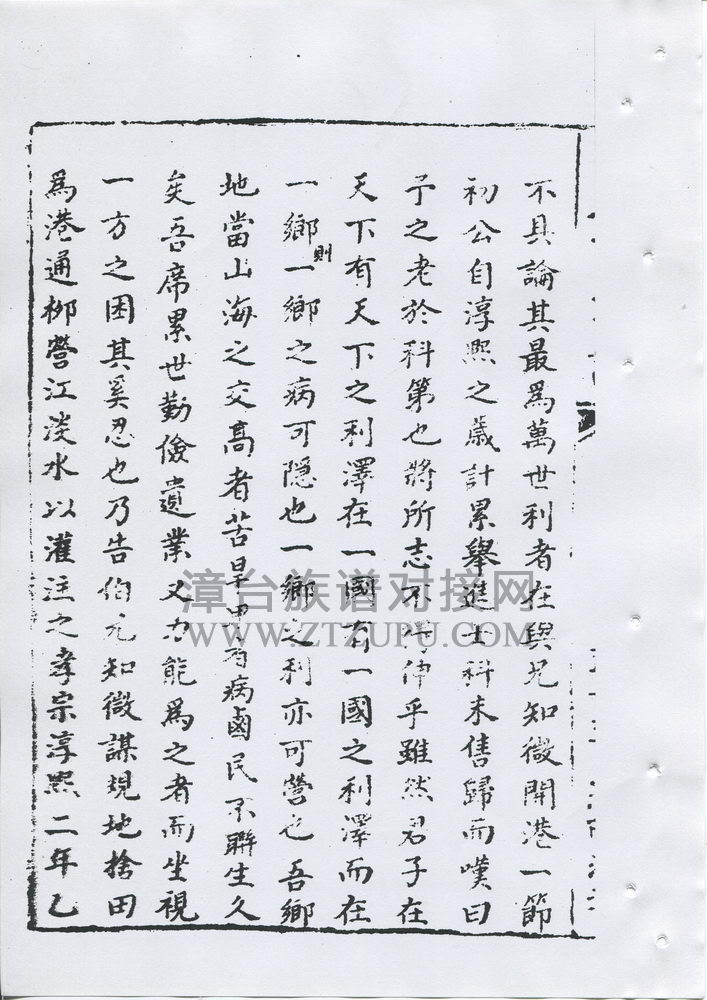 不具論其最為萬世利者在與兄知微開港一節
初公自淳熙之歲計累舉進士科未售歸而嘆曰
予之老於科第也將所志不得伸乎雖然君子在
天下有天下之利澤在一國有一國之利澤而在
一鄉則一鄉之病可隱也一鄉之利亦可營也吾鄉
地當山海之交高者苦旱卑者病鹵民不聊生久
矣吾席累世勤儉遺業又力能為之者而坐視
一方之困其奚忍也乃告伯兄知微謀規地捨田
為港通柳營江淡水以灌注之孝宗淳熙二年乙
漳台族谱对接网
WWW.ZTZUPU.COM